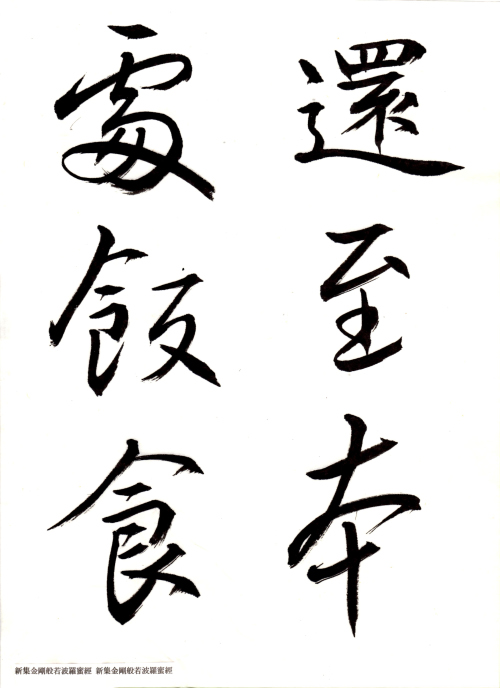 還至本
處飯食
新集金剛般若波羅蜜經 新集金剛般若波羅蜜經